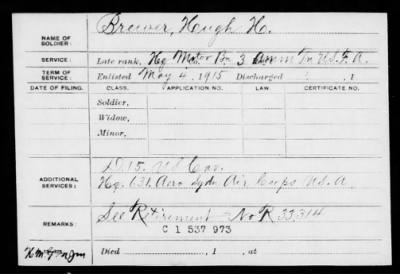 NAME OF SOLDIER: Brewer, Hugh H.
SERVICE: Late rank, Hq Motor Bn 3 Amm Tn U.S.F.A.
TERM OF SERVICE: Enlisted May 4, 1915 Discharged , 1
DATE OF FILING. CLASS. APPLICATION NO. LAW. CERTIFICATE NO.
Soldier,
Widow,
Minor,
ADDITIONAL SERVICES: D. 15. US Cav.
Hq. 631. Aero Sqdn Air Corps U.S.A.
REMARKS: See Retirement No R 33314
C 1 537 973
Died , 1 , at